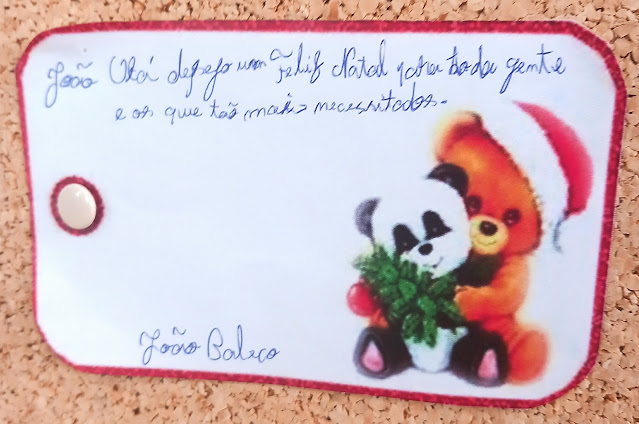 João Olá desejo um Feliz Natal para toda gente
e os que tão mais necessitados.
João Baleco